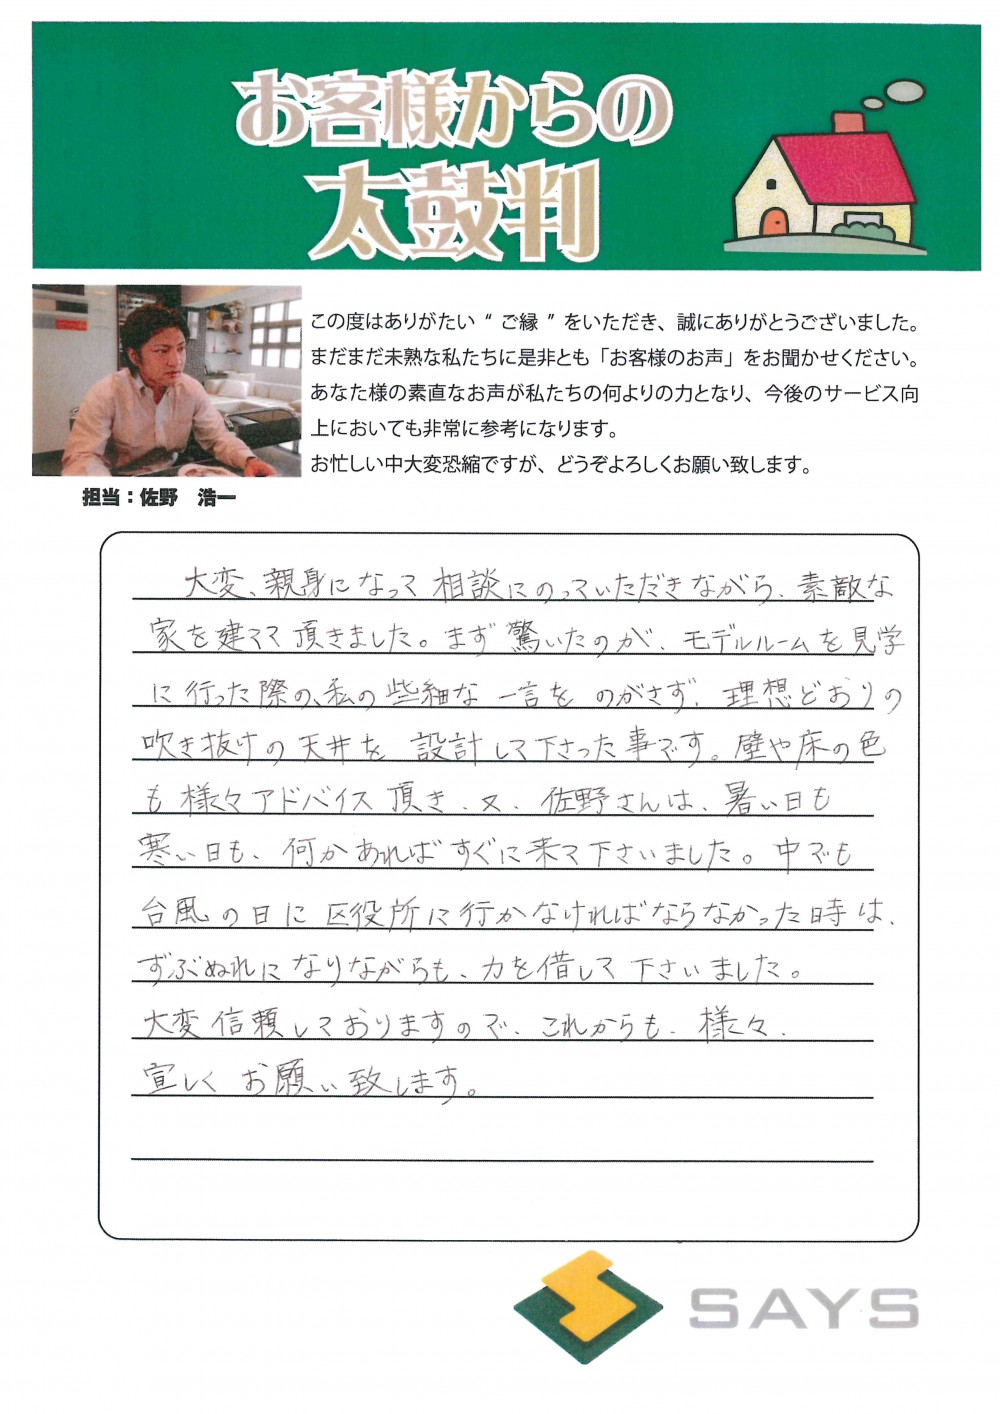 お客様からの
太鼓判
この度はありがたい “ ご縁 ” をいただき、誠にありがとうございました。
まだまだ未熟な私たちに是非とも「お客様のお声」をお聞かせください。
あなた様の素直なお声が私たちの何よりの力となり、今後のサービス向
上においても非常に参考になります。
お忙しい中大変恐縮ですが、どうぞよろしくお願い致します。
担当：佐野　浩一
大変、親身になって相談にのっていただきながら、素敵な
家を建てて頂きました。まず驚いたのが、モデルルームを見学
に行った際の、私の些細な一言をのがさず、理想どおりの
吹き抜けの天井を設計して下さった事です。壁や床の色
も様々アドバイス頂き、又、佐野さんは、暑い日も
寒い日も、何かあればすぐに来て下さいました。中でも
台風の日に区役所に行かなければならなかった時は、
ずぶぬれになりながらも、力を借して下さいました。
大変信頼しておりますので、これからも、様々、
宜しくお願い致します。
SAYS